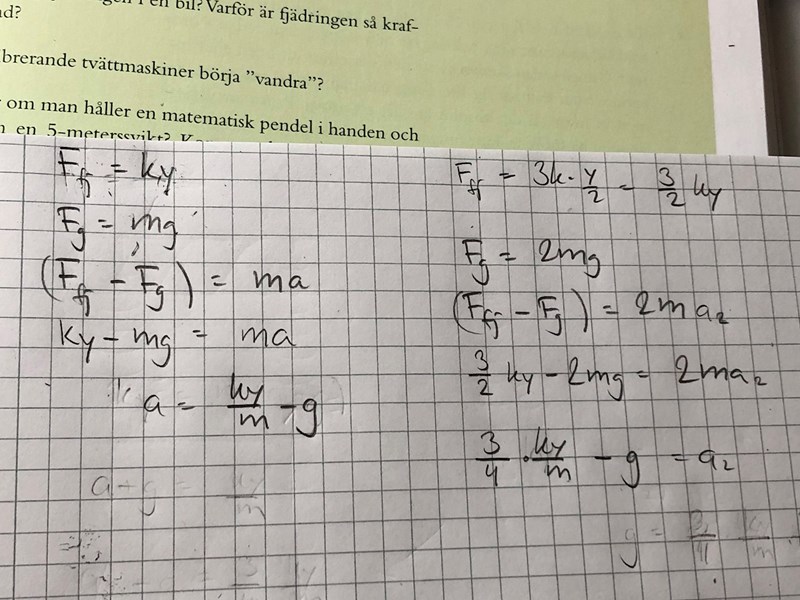 en bil? Varför är fjädringen så kraf-
brerande tvättmaskiner börja ”vandra”?
om man håller en matematisk pendel i handen och
en 5-meterssvikt?
F_fj = ky
F_g = mg
(F_fj - F_g) = ma
ky - mg = ma
a = ky/m - g
a + g = ky/m
F_fj = 3k · y/2 = 3/2 ky
F_g = 2mg
(F_fj - F_g) = 2ma₂
3/2 ky - 2mg = 2ma₂
3/4 · ky/m - g = a₂
g = 3/4 ky/m